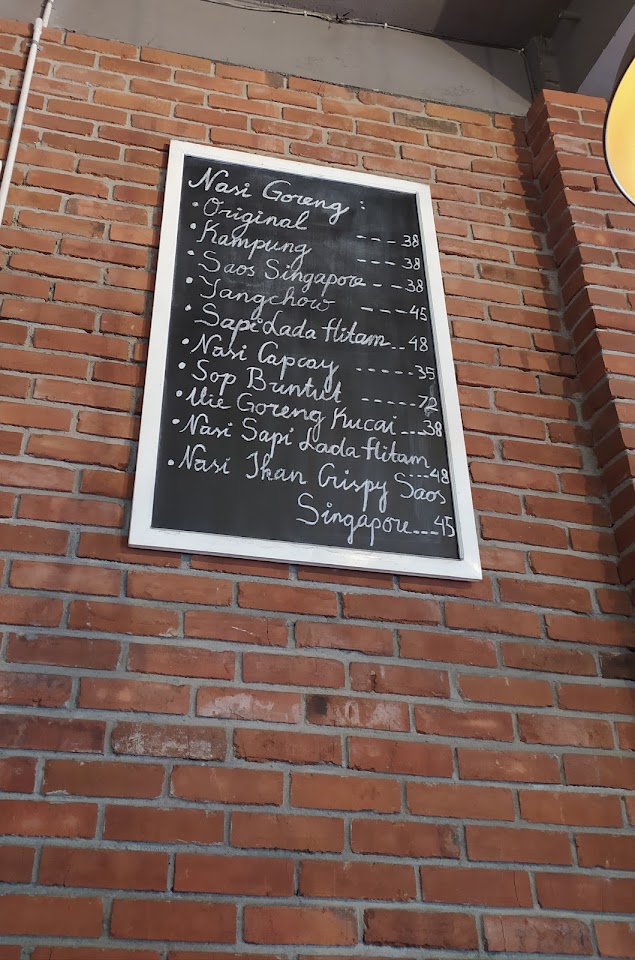 Nasi Goreng :
• Original - - - 38
• Kampung - - - 38
• Saos Singapore - - - 38
• Yangchow - - - 45
• Sapi Lada Hitam - - 48
• Nasi Capcay - - - - - 35
• Sop Buntut - - - - - 72
• Mie Goreng Kucai - - - 38
• Nasi Sapi Lada Hitam - - - 48
• Nasi Ikan Crispy Saos
Singapore - - - - 45